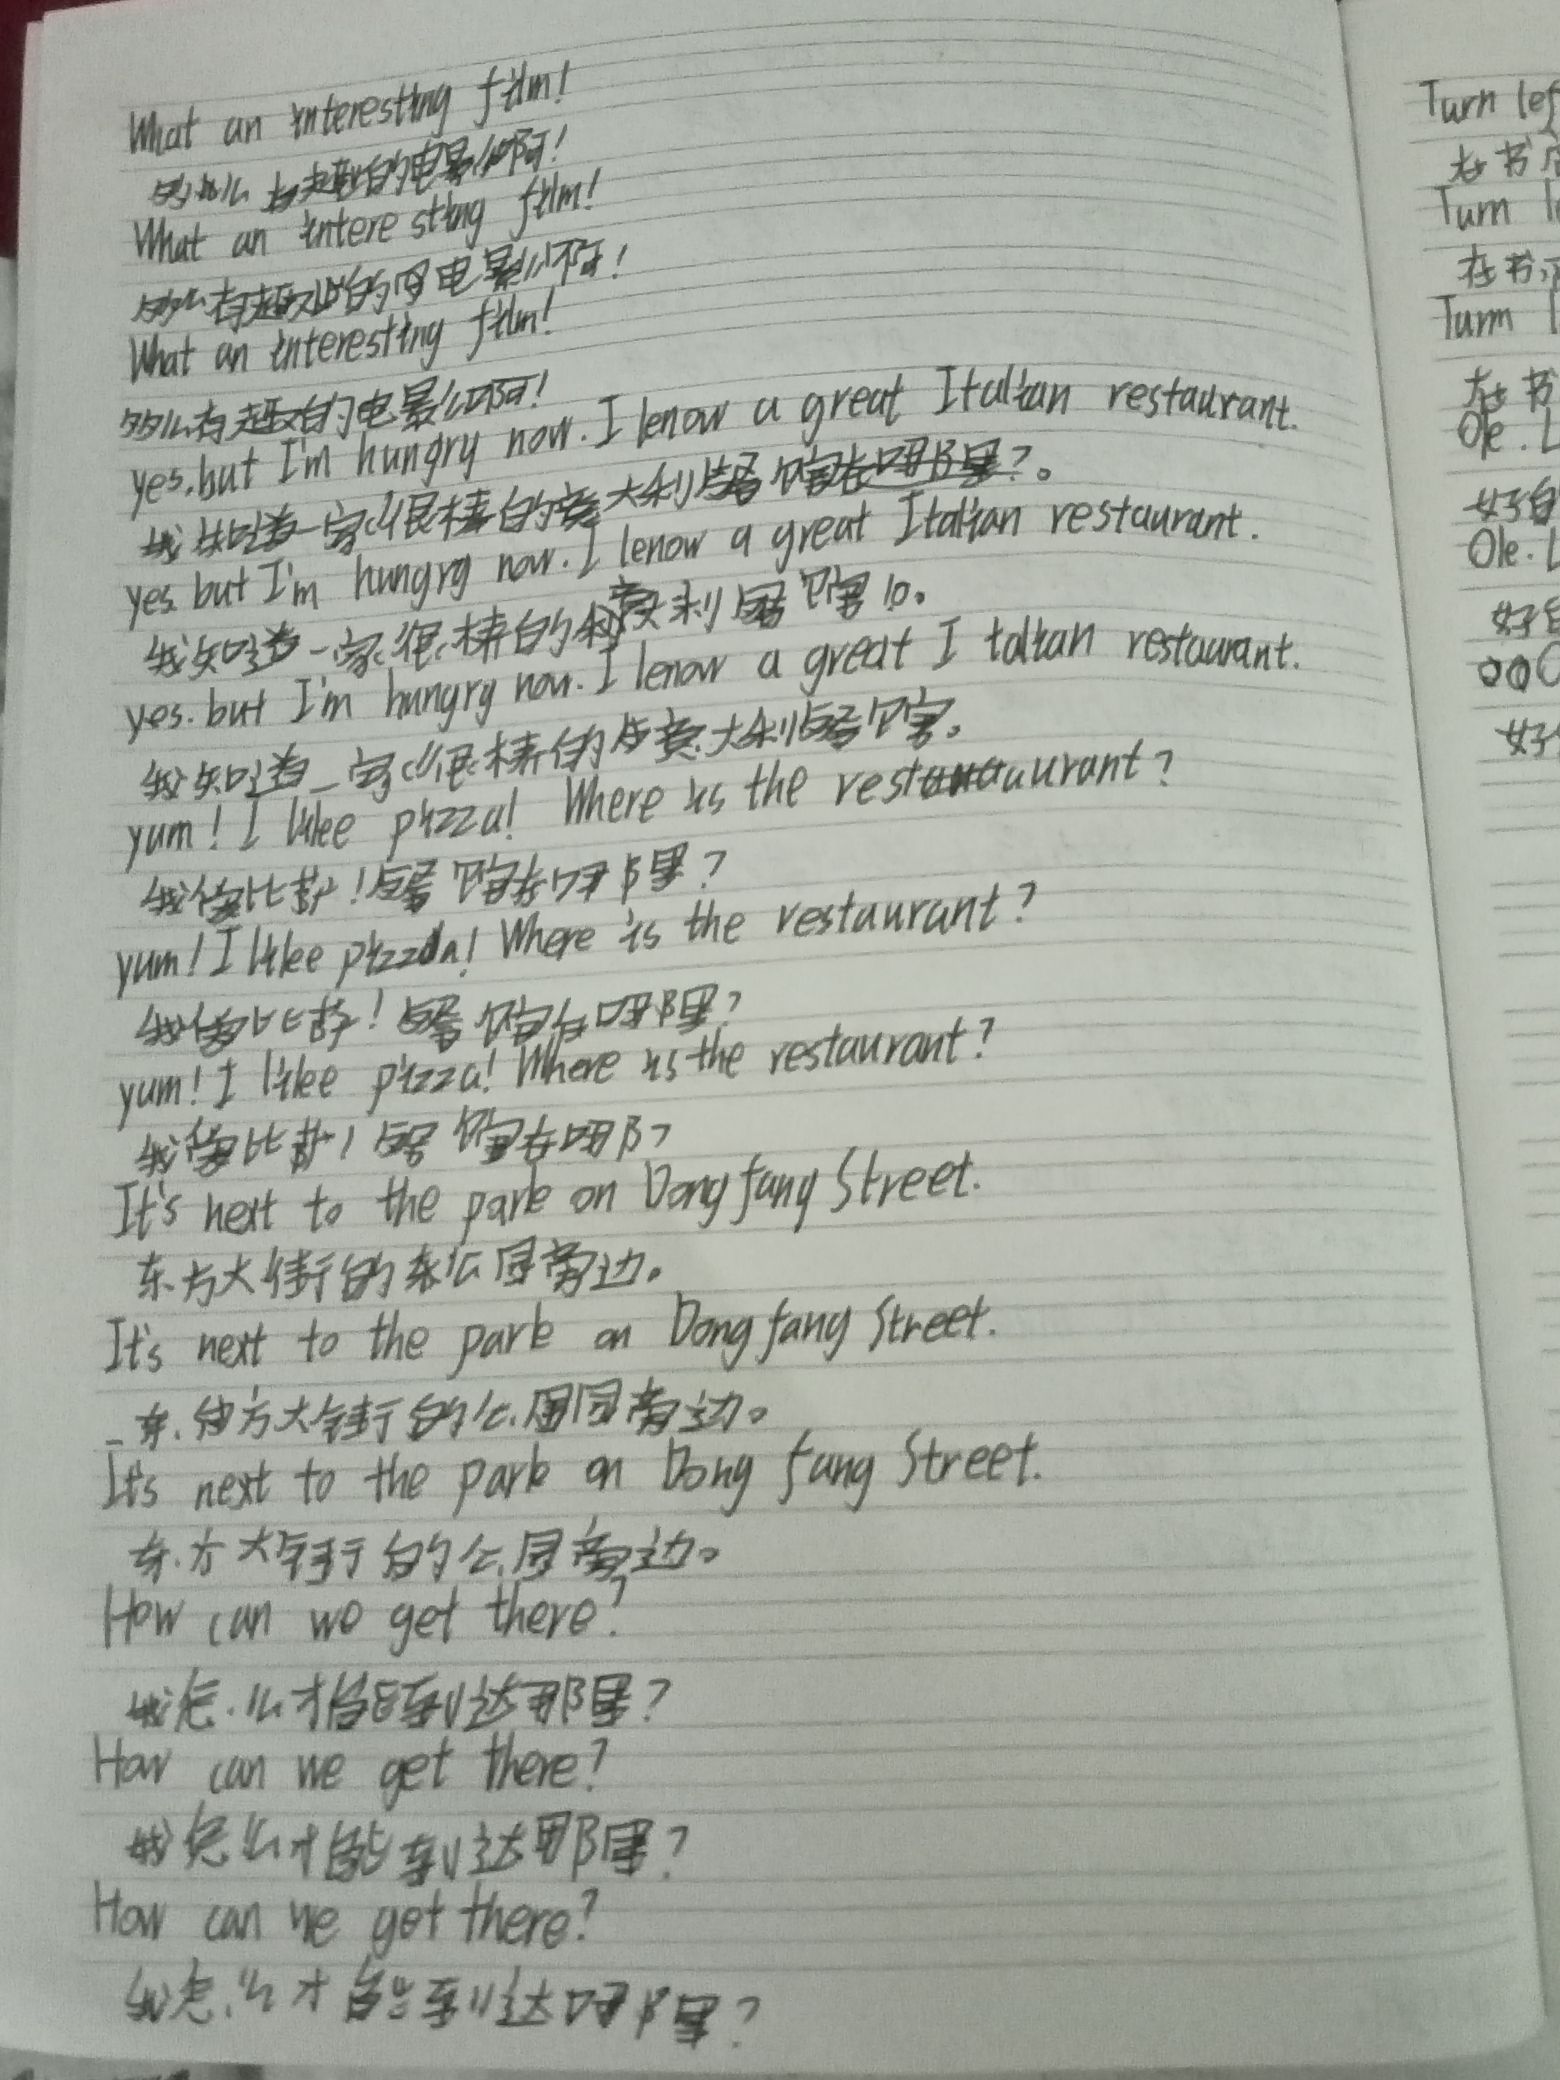 What an interesting film!
有趣的电影啊!
What an interesting film!
有趣的电影啊!
What an interesting film!
有趣的电影啊!
yes, but I'm hungry now. I know a great Italian restaurant.
我知道一家很棒的意大利餐馆在哪里?。
yes. but I'm hungry now. I know a great Italian restaurant.
我知道一家很棒的意大利餐馆。
yes. but I'm hungry now. I know a great Italian restaurant.
我知道一家很棒的意大利餐馆。
yum! I like pizza! Where is the restaurant?
我像比萨!餐馆在哪里?
yum! I like pizza! Where is the restaurant?
我像比萨!餐馆在哪里?
yum! I like pizza! Where is the restaurant?
我像比萨!餐馆在哪?
It's next to the park on Dongfang Street.
东方大街的公园旁边。
It's next to the park on Dongfang Street.
东方大街的公园旁边。
It's next to the park on Dong fang Street.
东方大街的公园旁边。
How can we get there?
我怎么才能到达那里?
How can we get there?
我怎么才能到达那里?
How can we get there?
我怎么才能到达哪里?
Turn
在书
Turn
在书
Turn
在书